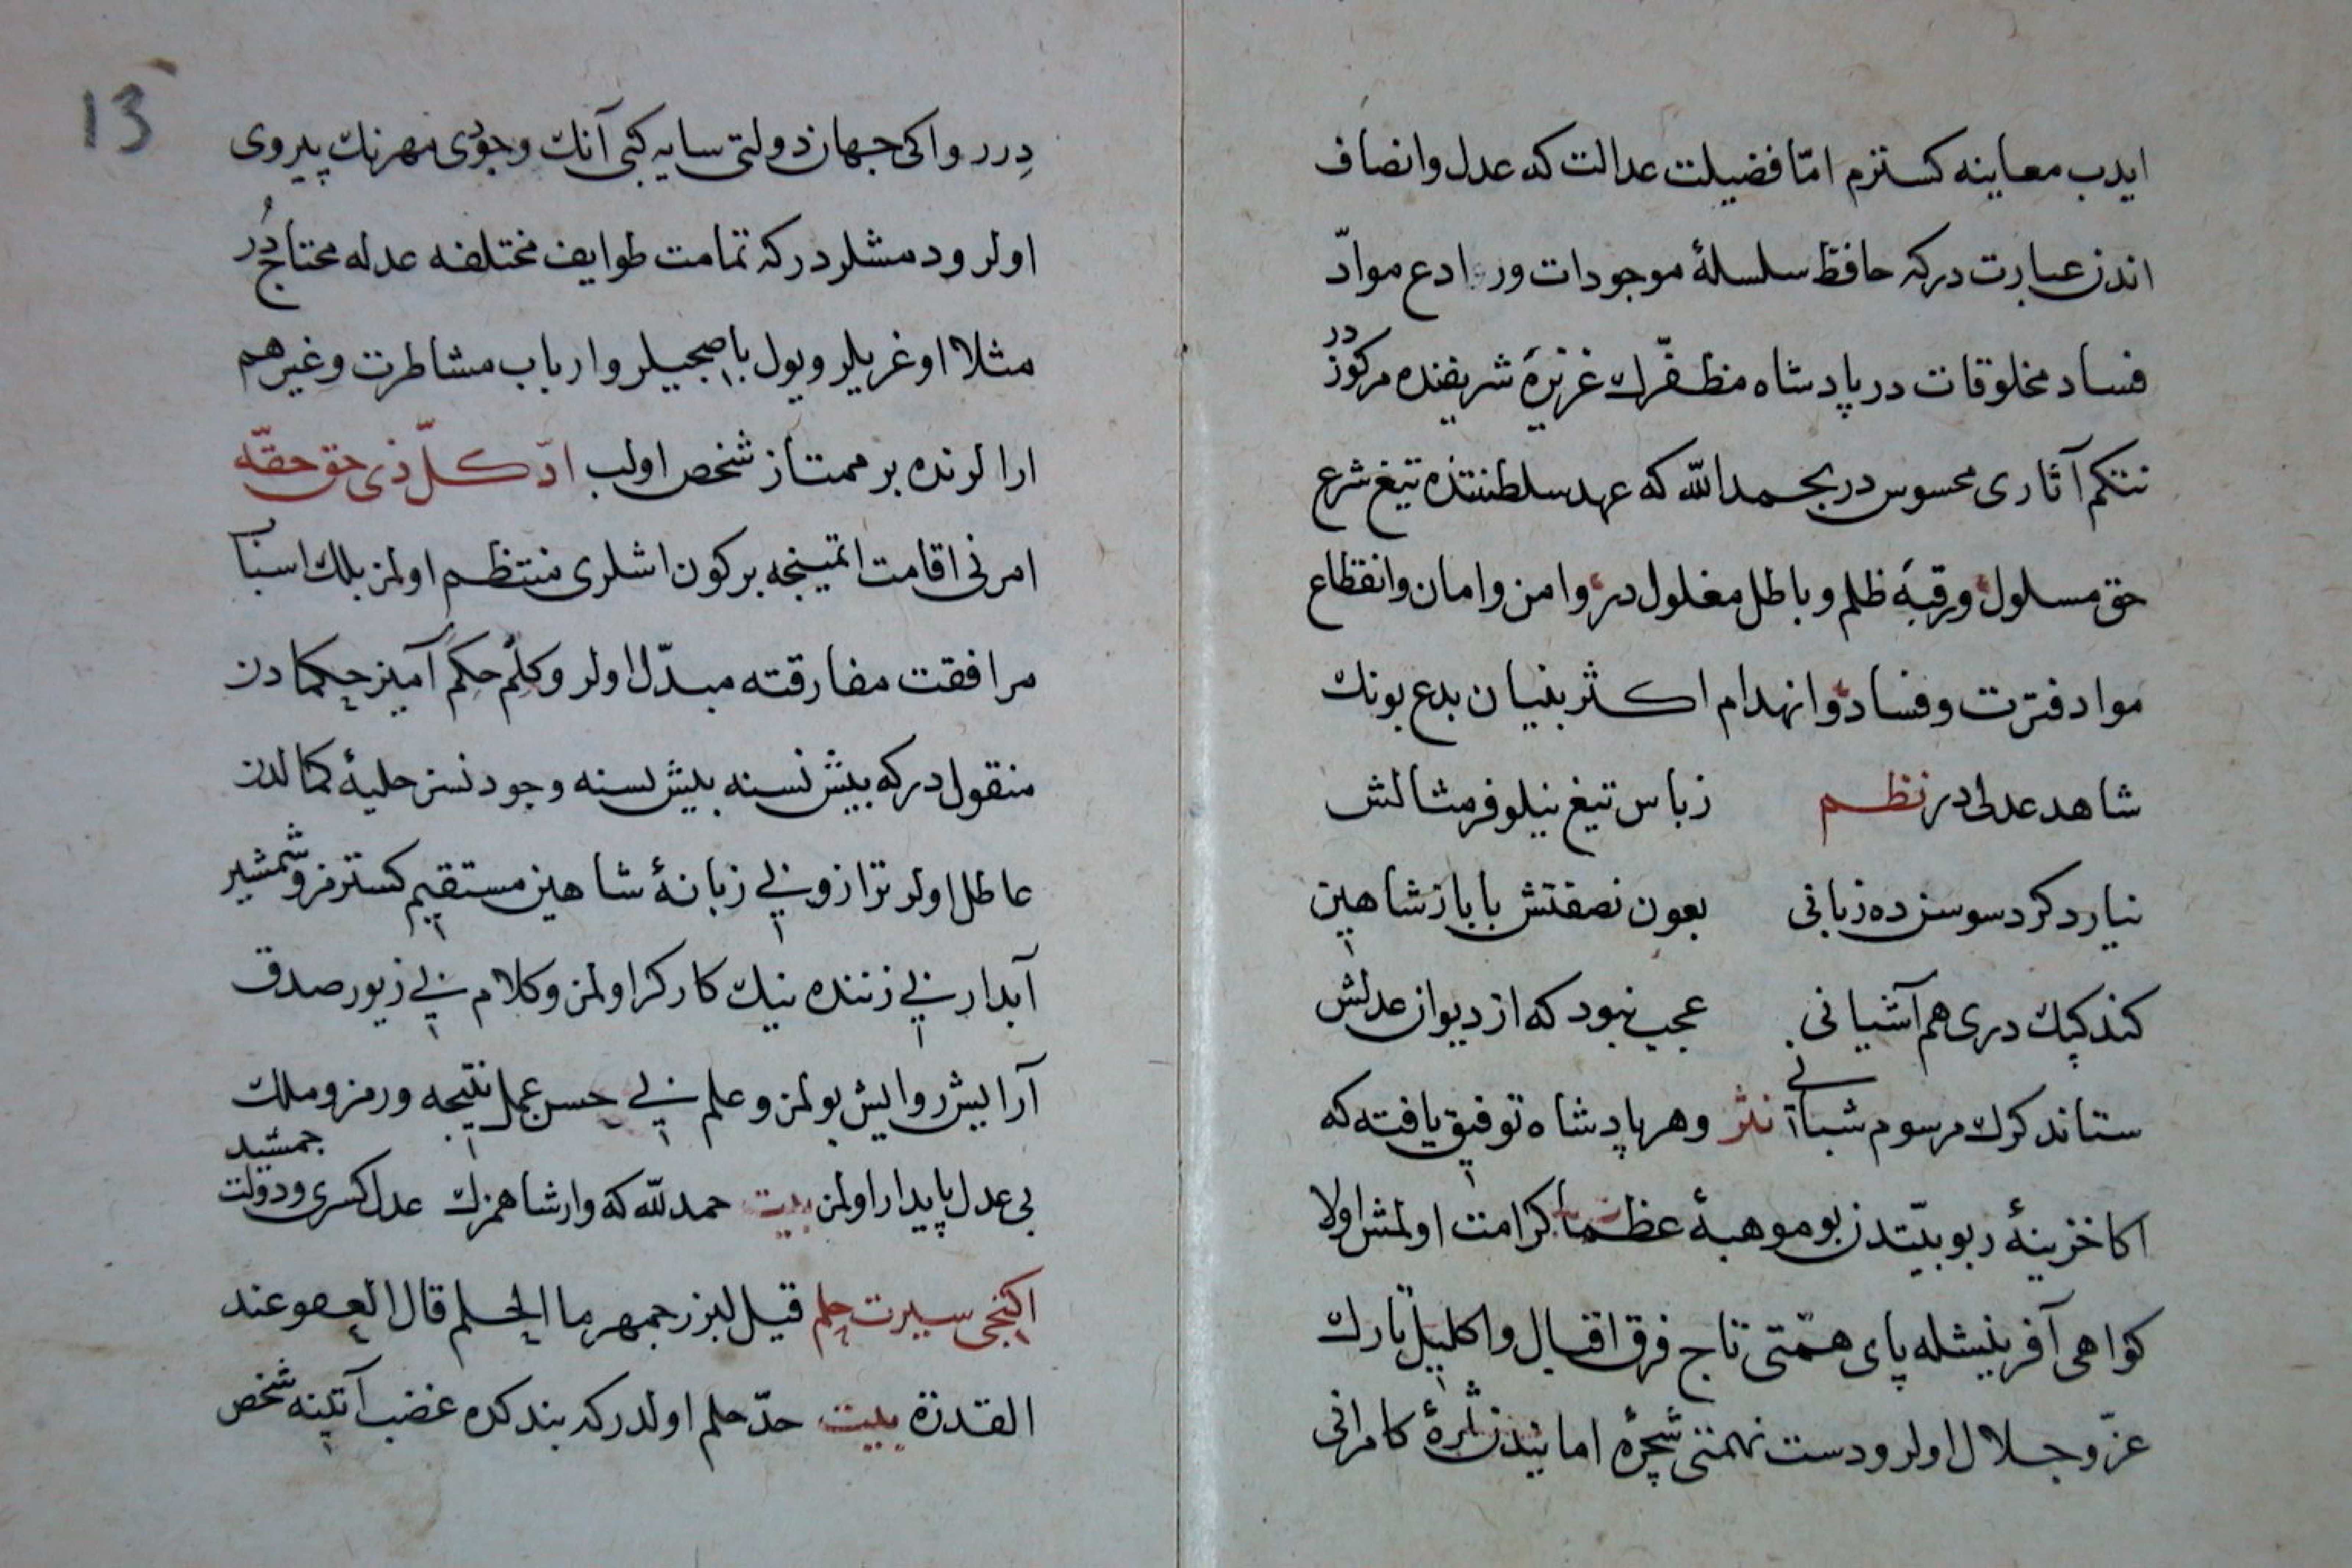 ايدب معاينه كسترم امّا فضيلت عدالت كه عدل وانصاف
اندن عبارت دركه حافظ سلسلهٔ موجودات ورادع موادّ
فساد مخلوقات در پادشاه مظفّرك غريزهٔ شريفنده مركوزدر
نتكم آثارى محسوس در بحمد الله كه عهد سلطنتنده تيغ شرع
حق مسلول ورقبهٔ ظلم وباطل مغلول در وامن وامان وانقطاع
مواد فترت وفساد وانهدام اكثر بنيان بدع بونك
شاهد عدلى در نظم زباس تيغ نيلوفر مثالش
نيارد كرد سوسن ده زبانى بعون نصفتش با باز شاهين
كند كبك درى هم آشيانى عجب نبود كه از ديوان عدلش
ستاند كرك مرسوم شبانى نثر وهر پادشاه توفيق يافته كه
اكا خزينهٔ ربوبيّتدن بو موهبهٔ عظما كرامت اولمش اولا
كواهى آفرينشله پاى همّتى تاج فرق اقبال واكليل تارك
عزّ وجلال اولر ودست نهمتى شجرهٔ امانيدن ثمرهٔ كامرانى
13
دِرر واكى جهان دولتى سايه كبى آنك وجودى مهرنك پيروى
اولر ودمشلردركه تمامت طوايف مختلفه عدله محتاجدُر
مثلا اوغريلر ويول باصجيلر وارباب مشاطرت وغيرهم
ارالرنده بر ممتاز شخص اولب ادّ كلّ ذى حق حقّه
امرنى اقامت اتمينجه بركون اشلرى منتظم اولمز بلك اسباب
مرافقت مفارقته مبدّل اولر وكلم حكم آميز حكمادن
منقول دركه بيش نسنه بيش نسنه وجودنسز حليهٔ كمالدن
عاطل اولر ترازو بى زبانهٔ شاهين مستقيم كسترمز وشمشير
آبدار بى زننده نيك كاركر اولمز وكلام بى زيور صدق
آرايش روايش بولمز وعلم بى حسن عمل نتيجه ورمز وملك
بى عدل پايدار اولمز بيت حمد لله كه وار شاهمزك عدل كسرى ودولت جمشيد
اكنجى سيرت حلم قيل لبزرجمهر ما الحلم قال العفو عند
القدرة بيت حدّ حلم اولدركه بند كده غضب آتينه شخص